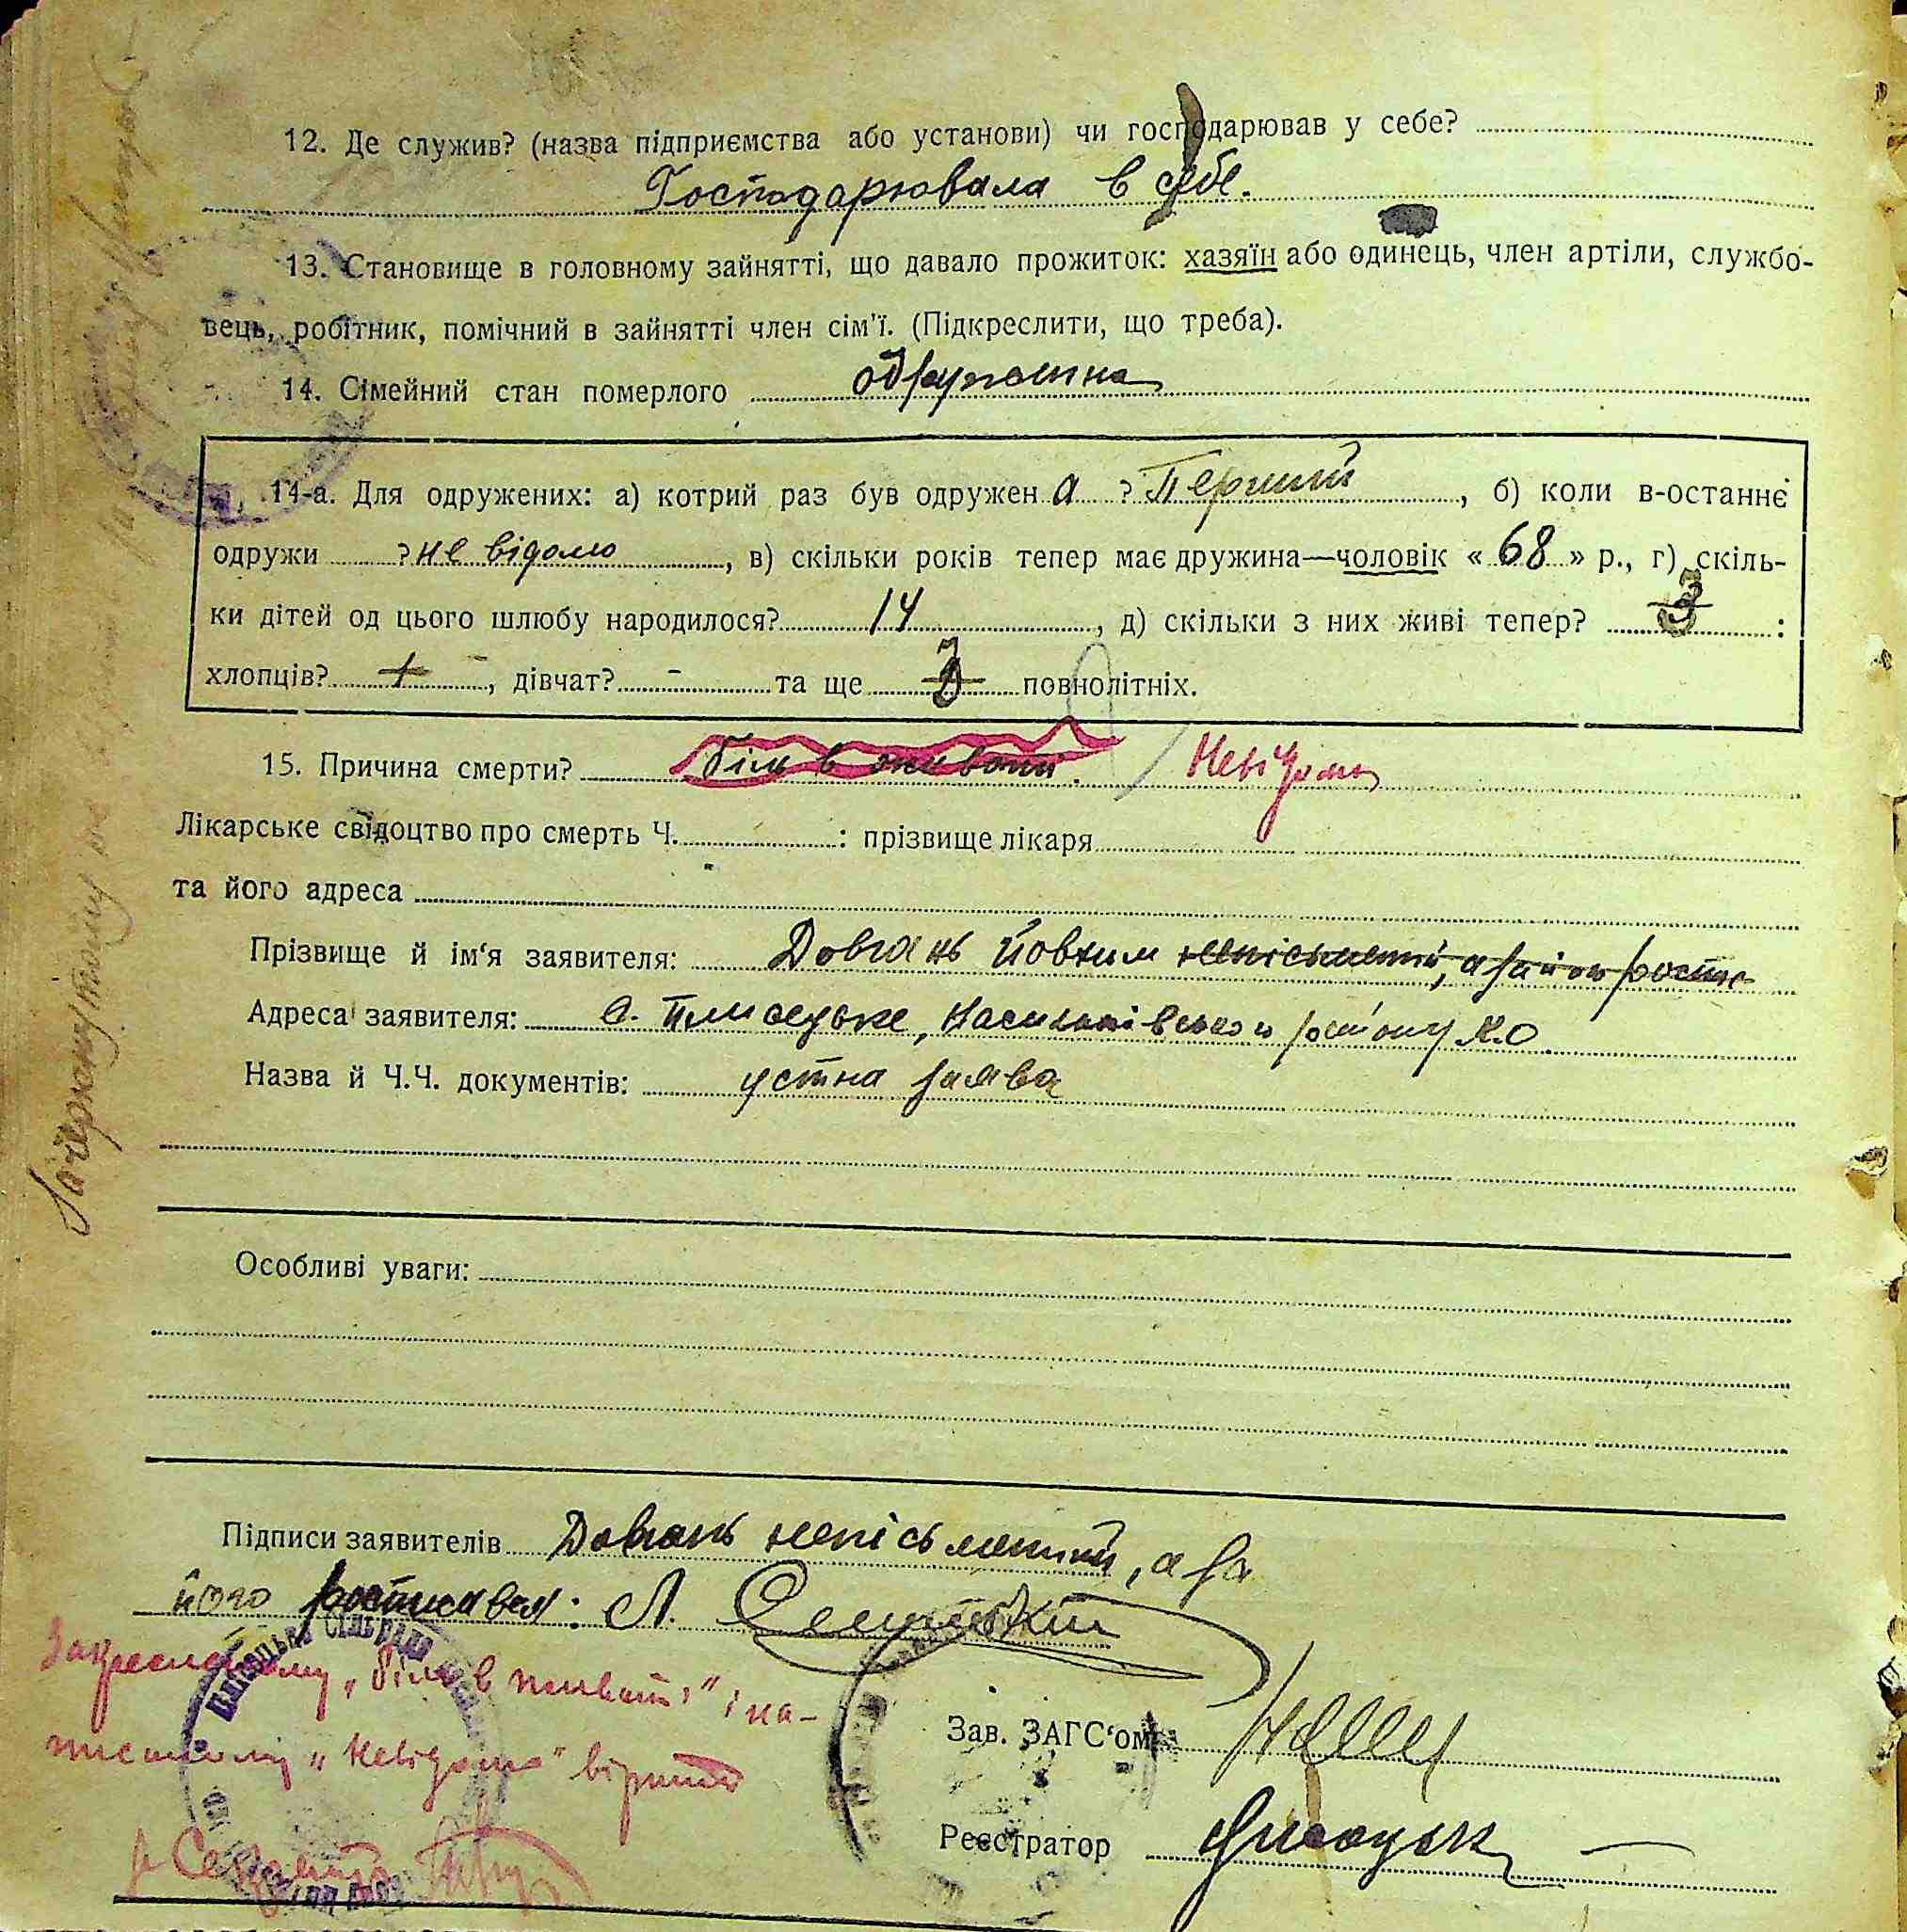 12. Де служив? (назва підприємства або установи) чи господарював у себе?
Господарювала в себе.
13. Становище в головному зайнятті, що давало прожиток: хазяїн або одинець, член артіли, службо-
вець, робітник, помічний в зайнятті член сім'ї. (Підкреслити, що треба).
14. Сімейний стан померлого одружена
14-а. Для одружених: а) котрий раз був одружен а ? Перший, б) коли в-останнє
одружи ? не відомо, в) скільки років тепер має дружина—чоловік « 68 » р., г) скіль-
ки дітей од цього шлюбу народилося? 14, д) скільки з них живі тепер? 3 :
хлопців? , дівчат? - та ще повнолітніх.
15. Причина смерти? біль в животі. Невідома
Лікарське свідоцтво про смерть Ч. : прізвище лікаря
та його адреса
Прізвище й ім'я заявителя: Довгань Йовхим неписьменний, а за його
Адреса заявителя: с. Плисецьке, Васильківського району К.О
Назва й Ч.Ч. документів: устна заява
Особливі уваги:
Підписи заявителів Довгань неписьменний, а за
його росписався: А.
Закресленому „біль в животі" і на-
писаному „Невідома" вірити
Зав. ЗАГС'ом
Реєстратор